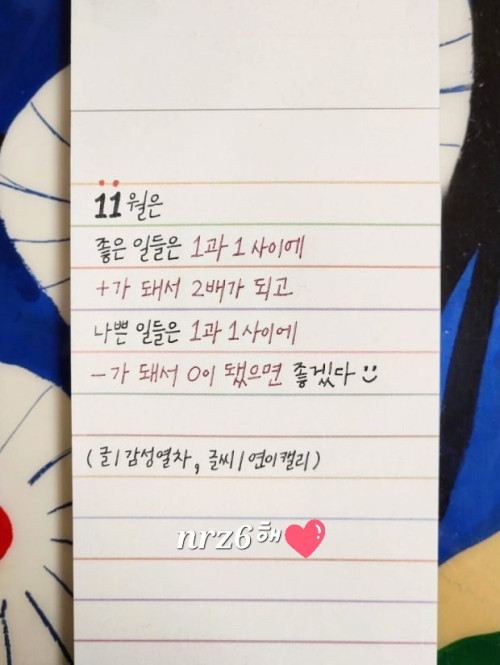 11월은
좋은 일들은 1과 1 사이에
+가 돼서 2배가 되고
나쁜 일들은 1과 1 사이에
-가 돼서 0이 됐으면 좋겠다 :)
(글|감성열차, 글씨|연이캘리)
nrz6해❤️